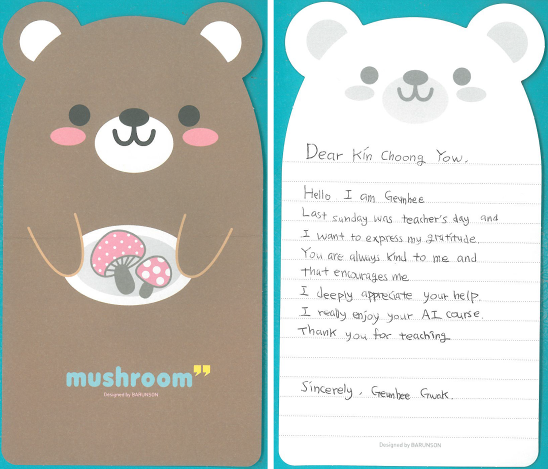 mushroom”
Designed by BARUNSON
Dear Kin Choong Yow.
Hello I am Geunbee
Last sunday was teacher's day and
I want to express my gratitude.
You are always kind to me and
that encourages me
I deeply appreciate your help.
I really enjoy your AI course.
Thank you for teaching
Sincerely, Geunbee Gwak.
Designed by BARUNSON